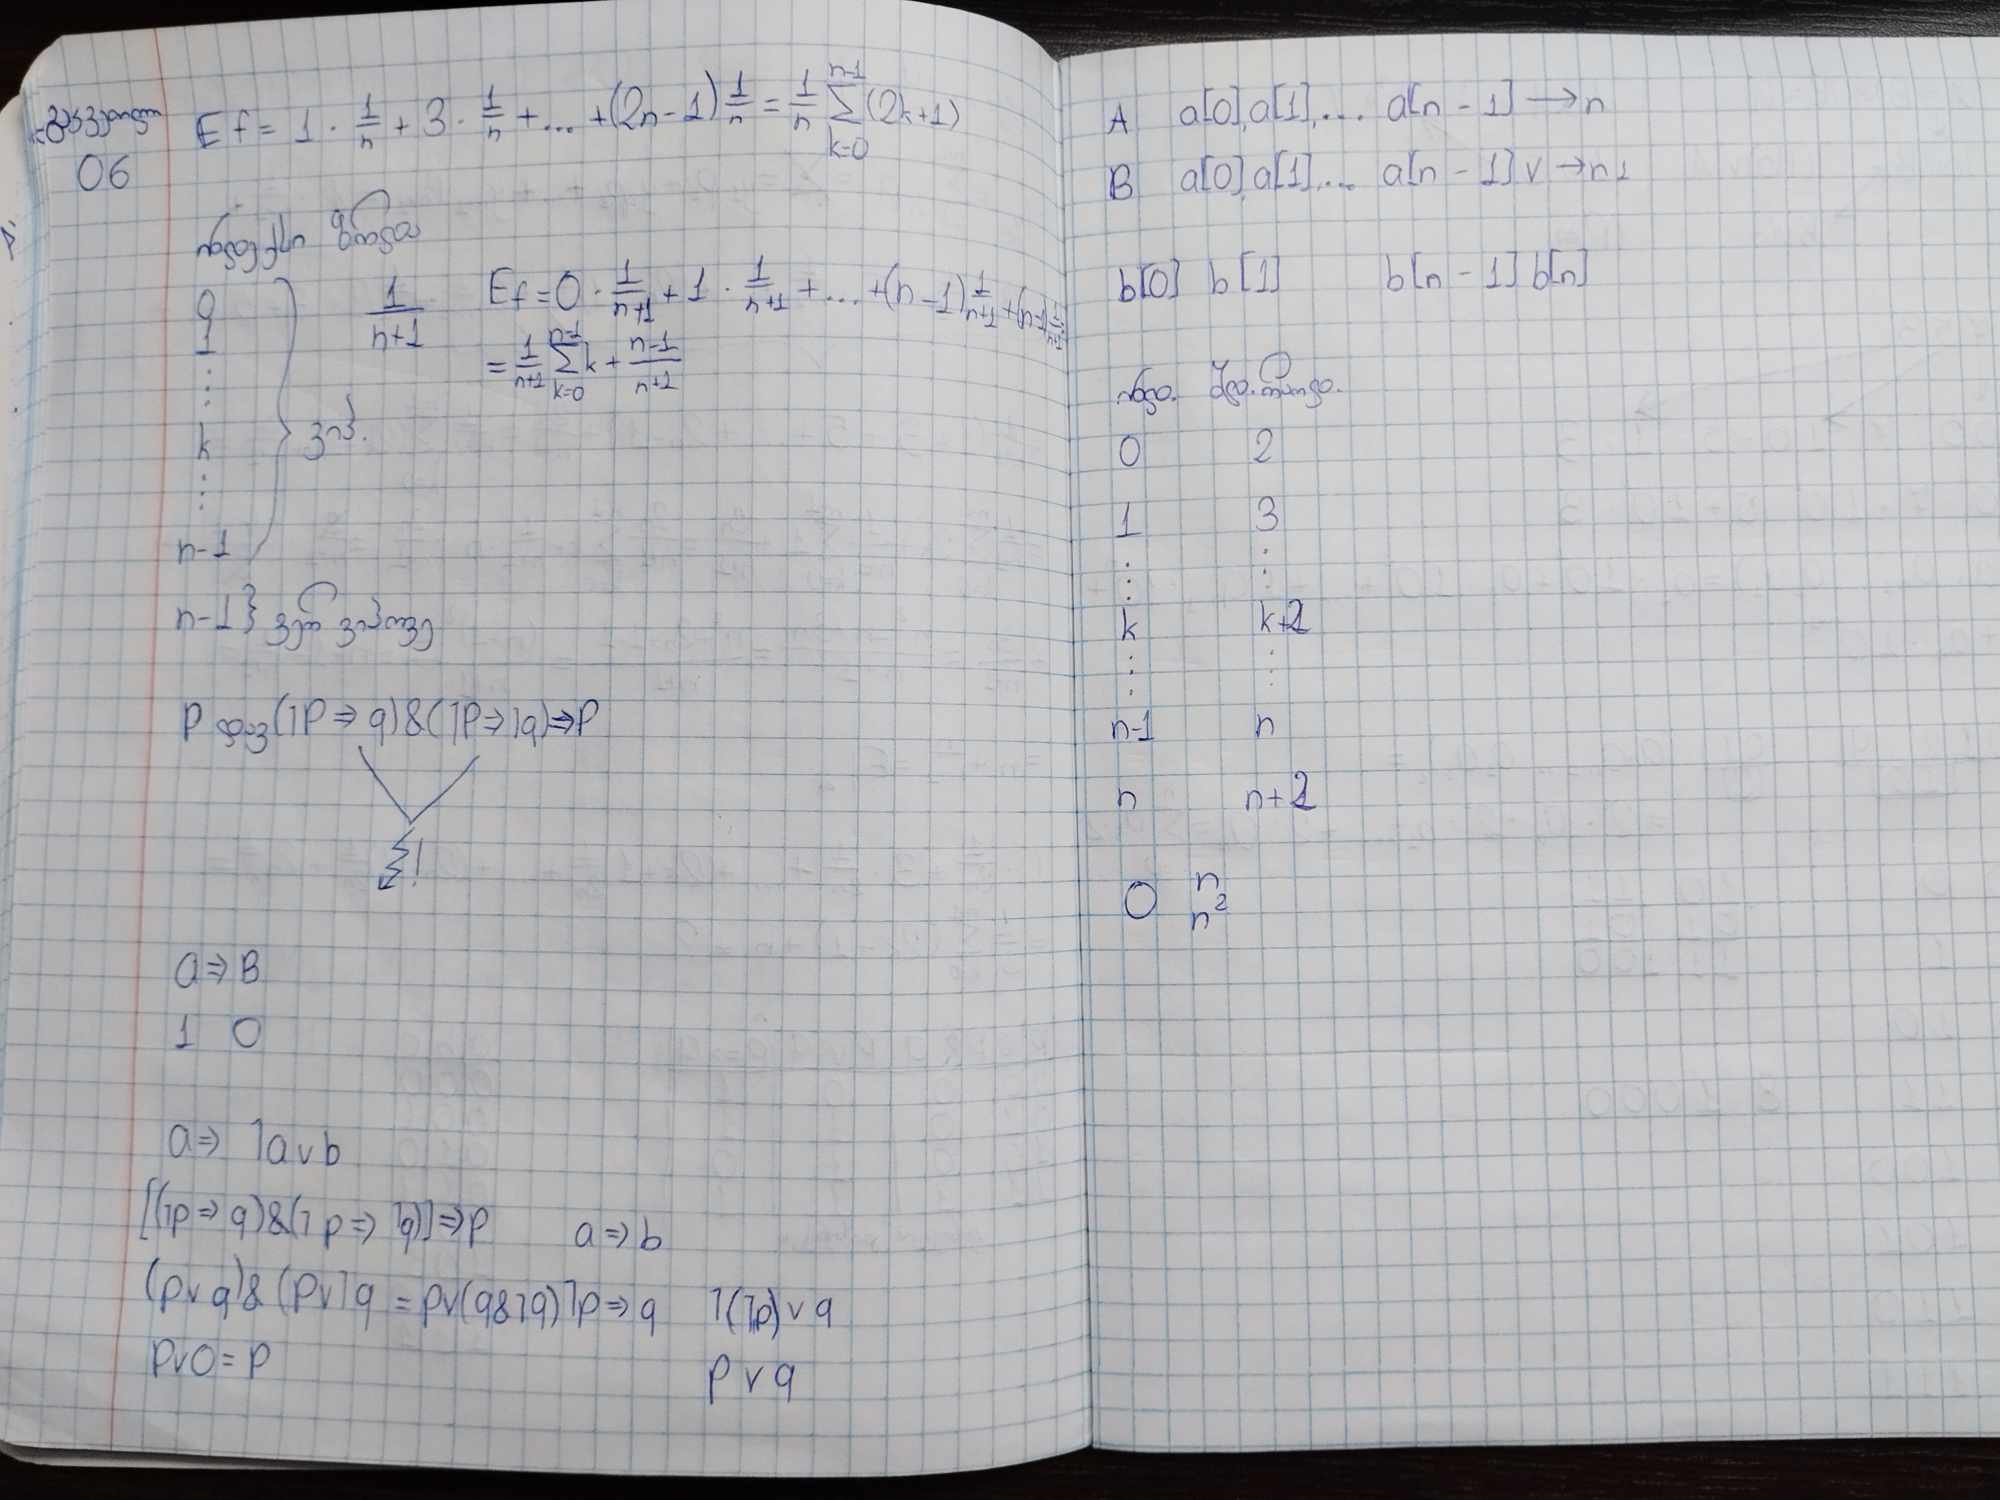 06
Ef = 1 · 1/n + 3 · 1/n + ... + (2n-1) 1/n = 1/n ∑_{k=0}^{n-1} (2k+1)
0
1
⋮
k
⋮
n-1
1/(n+1)
Ef = 0 · 1/(n+1) + 1 · 1/(n+1) + ... + (n-1) 1/(n+1) + (n-1) 1/(n+1)
= 1/(n+1) ∑_{k=0}^{n-1} k + (n-1)/(n+1)
ვიპ.
n-1} ვერ ვიპოვე
p (⅂p ⇒ q)&(⅂p ⇒ ⅂q) ⇒ p
!
a ⇒ B
1 0
a ⇒ ⅂a∨b
[(⅂p ⇒ q)&(⅂p ⇒ ⅂q)] ⇒ p
a ⇒ b
(p∨q)&(p∨⅂q = p∨(q&⅂q)
⅂p ⇒ q
⅂(⅂p)∨q
p∨0 = p
p∨q
A a[0],a[1],... a[n-1] → n
B a[0],a[1],... a[n-1] v → n+1
b[0] b[1] b[n-1] b[n]
0 2
1 3
⋮ ⋮
k k+2
⋮ ⋮
n-1 n
n n+2
O n
n²